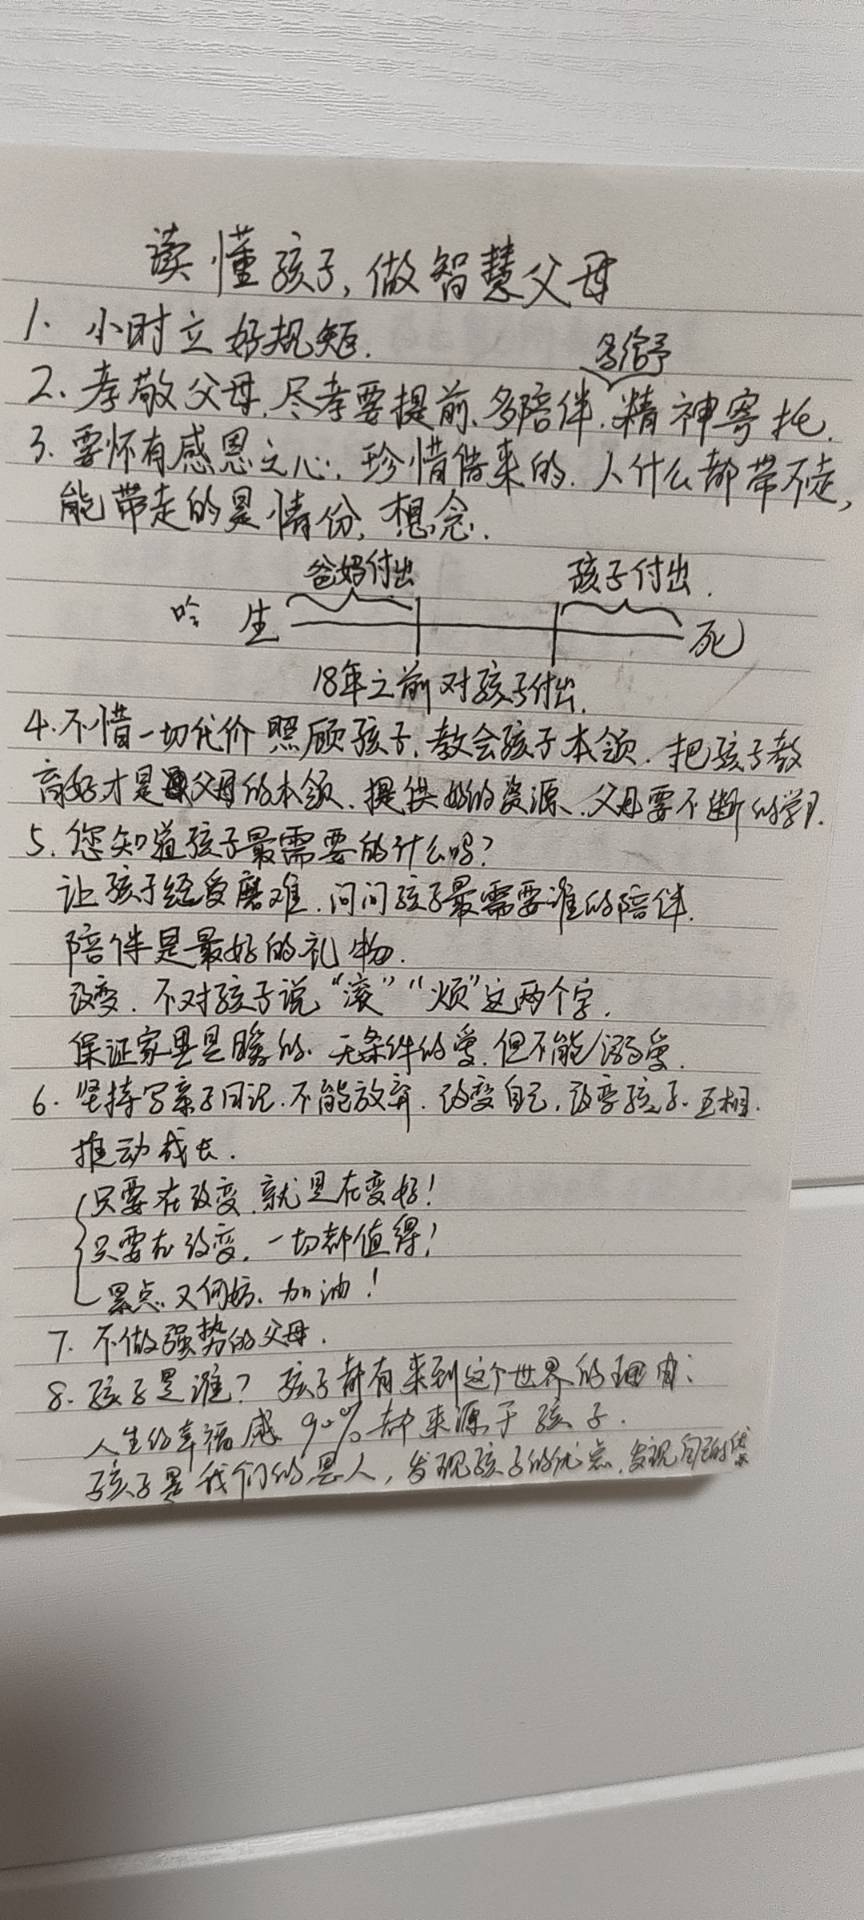 读懂孩子,做智慧父母
1. 小时立好规矩.
多给予
2. 孝敬父母.尽孝要提前、多陪伴.精神寄托.
3. 要怀有感恩之心.珍惜借来的.人什么都带不走,
能带走的是情份,想念.
爸妈付出 孩子付出.
生 死
18年之前对孩子付出.
4.不惜一切代价照顾孩子.教会孩子本领.把孩子教
育好才是父母的本领.提供好的资源.父母要不断的学习.
5.您知道孩子最需要的什么吗?
让孩子经受磨难.问问孩子最需要谁的陪伴.
陪伴是最好的礼物.
改变.不对孩子说“滚”“烦”这两个字.
保证家里是暖的.无条件的爱.但不能溺爱.
6.坚持写亲子日记.不能放弃.改变自己,改变孩子.互相.
推动成长.
只要在改变,就是在变好!
只要在改变,一切都值得!
累点又何妨、加油!
7.不做强势的父母.
8.孩子是谁?孩子都有来到这个世界的理由:
人生的幸福感90%都来源于孩子.
孩子是我们的恩人,发现孩子的优点.发现自己的